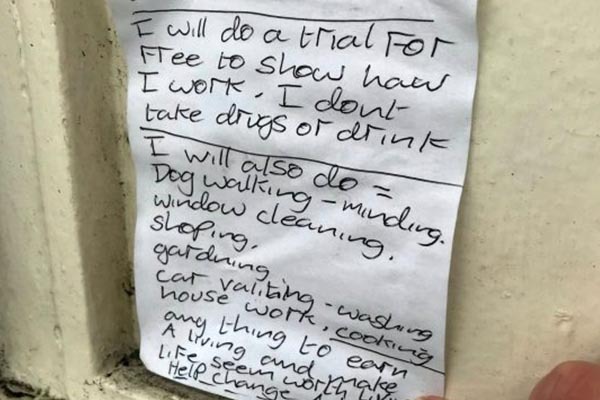 I will do a trial For
Free to show haw
I work. I dont
take drugs or drink
I will also do =
Dog walking - minding.
window cleaning.
shoping.
gardning
car valiting - washing
house work. cooking
any thing to earn
A living and make
Life seem worth
Help change